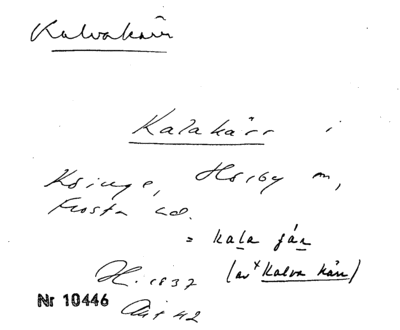 Kalvakärr
Kalakärr i
Ksinge, Hörby sn,
Frosta hd.
= kala jár
(av *Kalva kärr)
H. 1937
Nr 10446
42